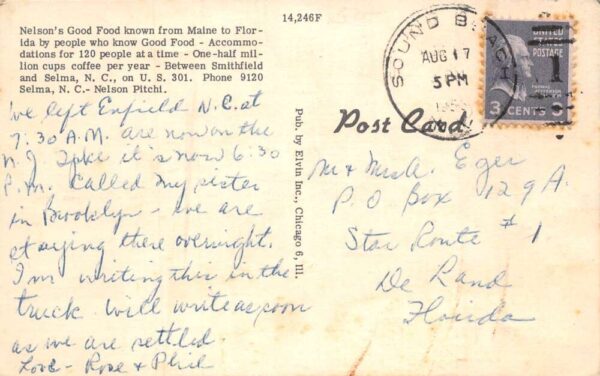 14,246F
Nelson's Good Food known from Maine to Flor-
ida by people who know Good Food - Accommo-
dations for 120 people at a time - One-half mil-
lion cups coffee per year - Between Smithfield
and Selma, N. C., on U. S. 301. Phone 9120
Selma, N. C.- Nelson Pitchi.
We left Enfield N.C. at
7:30 A.M. are now on the
N.J. Tpke it's now 6:30
P.M. Called my sister
in Brooklyn - we are
staying there overnight.
I'm writing this in the
truck. Will write as soon
as we are settled.
Love - Rose & Phil
Pub. by Elvin Inc., Chicago 6, Ill.
Post Card
SOUND BEACH
AUG 17
5 PM
UNITED
STATES
POSTAGE
THOMAS
JEFFERSON
3 CENTS 3
Mr & Mrs A. Eger
P.O Box 129A.
Star Route #1
De Land
Florida